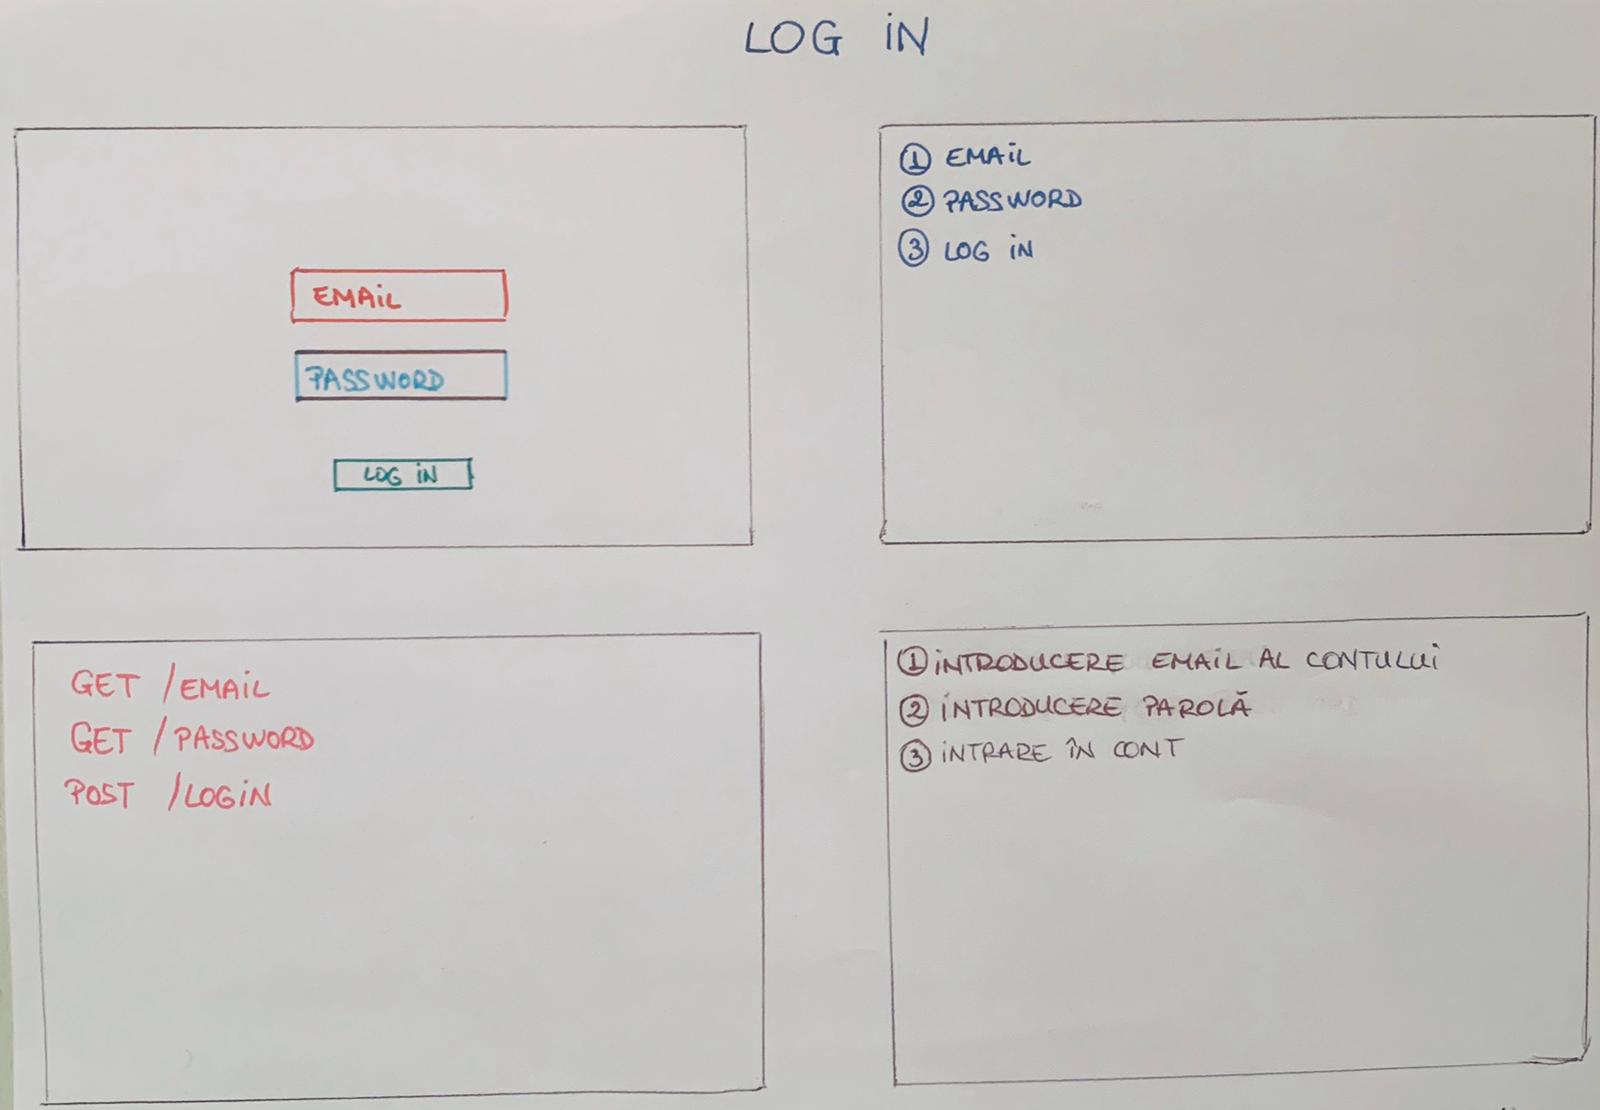 LOG IN
EMAIL
PASSWORD
LOG IN
① EMAIL
② PASSWORD
③ LOG IN
GET /EMAIL
GET /PASSWORD
POST /LOGIN
① INTRODUCERE EMAIL AL CONTULUI
② INTRODUCERE PAROLĂ
③ INTRARE ÎN CONT